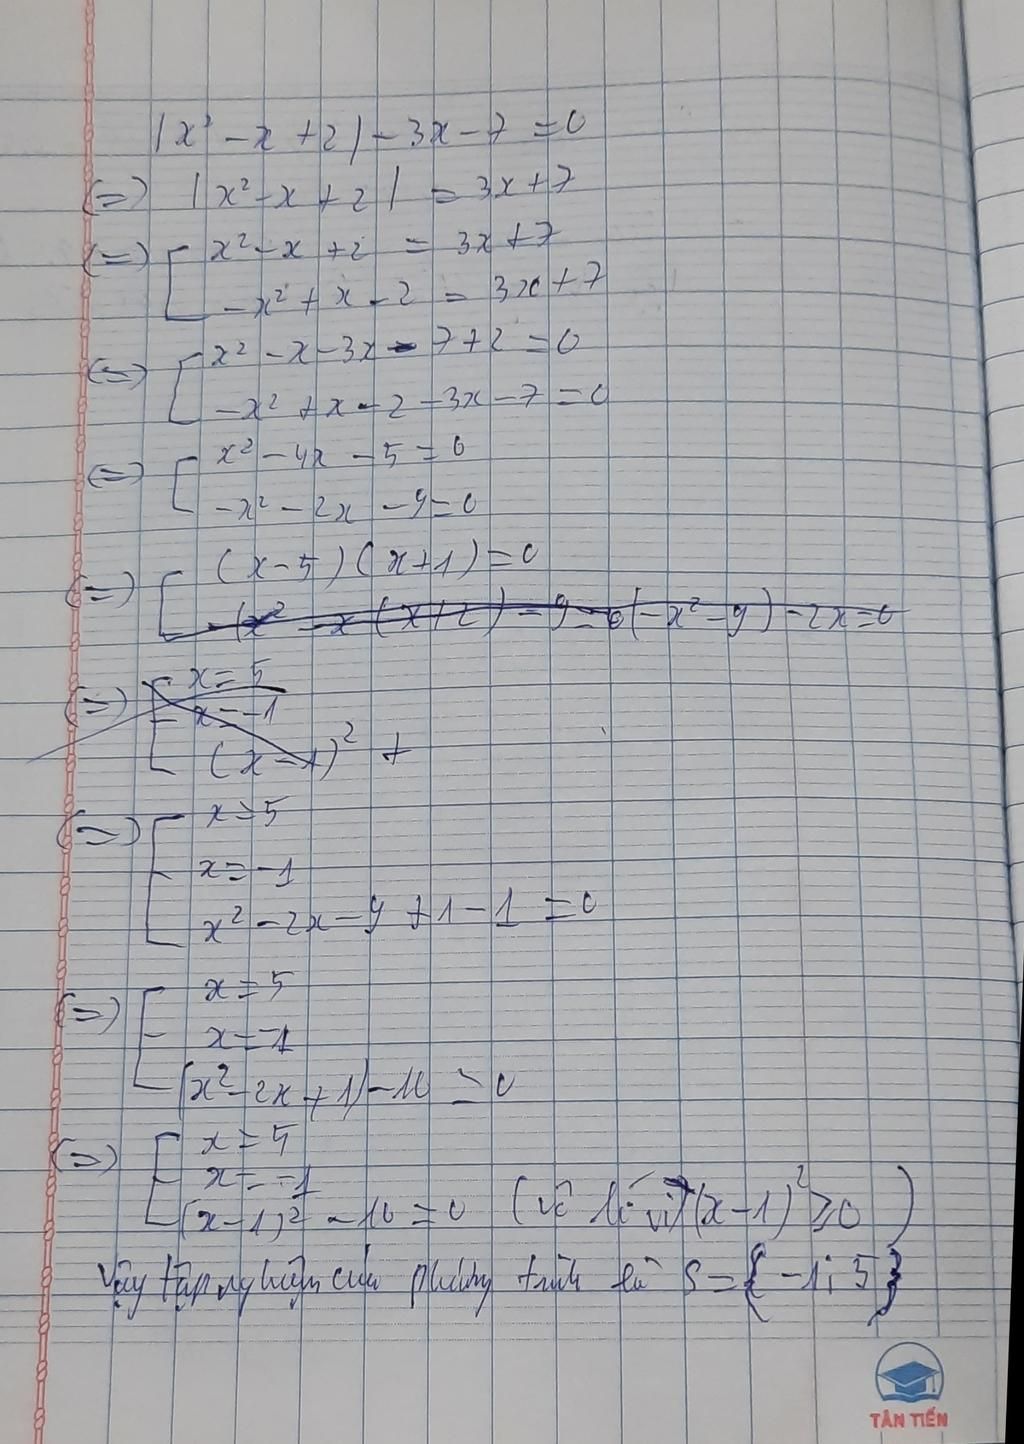 |x² - x + 2| - 3x - 7 = 0
(=) |x² - x + 2| = 3x + 7
(=) [ x² - x + 2 = 3x + 7
- x² + x - 2 = 3x + 7
(=) [ x² - x - 3x - 7 + 2 = 0
- x² + x - 2 - 3x - 7 = 0
(=) [ x² - 4x - 5 = 0
- x² - 2x - 9 = 0
(=) [ (x - 5)(x + 1) = 0
(-x² - 9) - 2x = 0
(=) [ x = 5
x = -1
(x - 1)² +
(=) [ x = 5
x = -1
x² - 2x - 9 + 1 - 1 = 0
(=) [ x = 5
x = -1
(x² - 2x + 1) - 10 = 0
(=) [ x = 5
x = -1
(x - 1)² - 10 = 0 (vô lí vì (x - 1)² ≥ 0)
Vậy tập nghiệm của phương trình là S = {-1; 5}
TÂN TIẾN